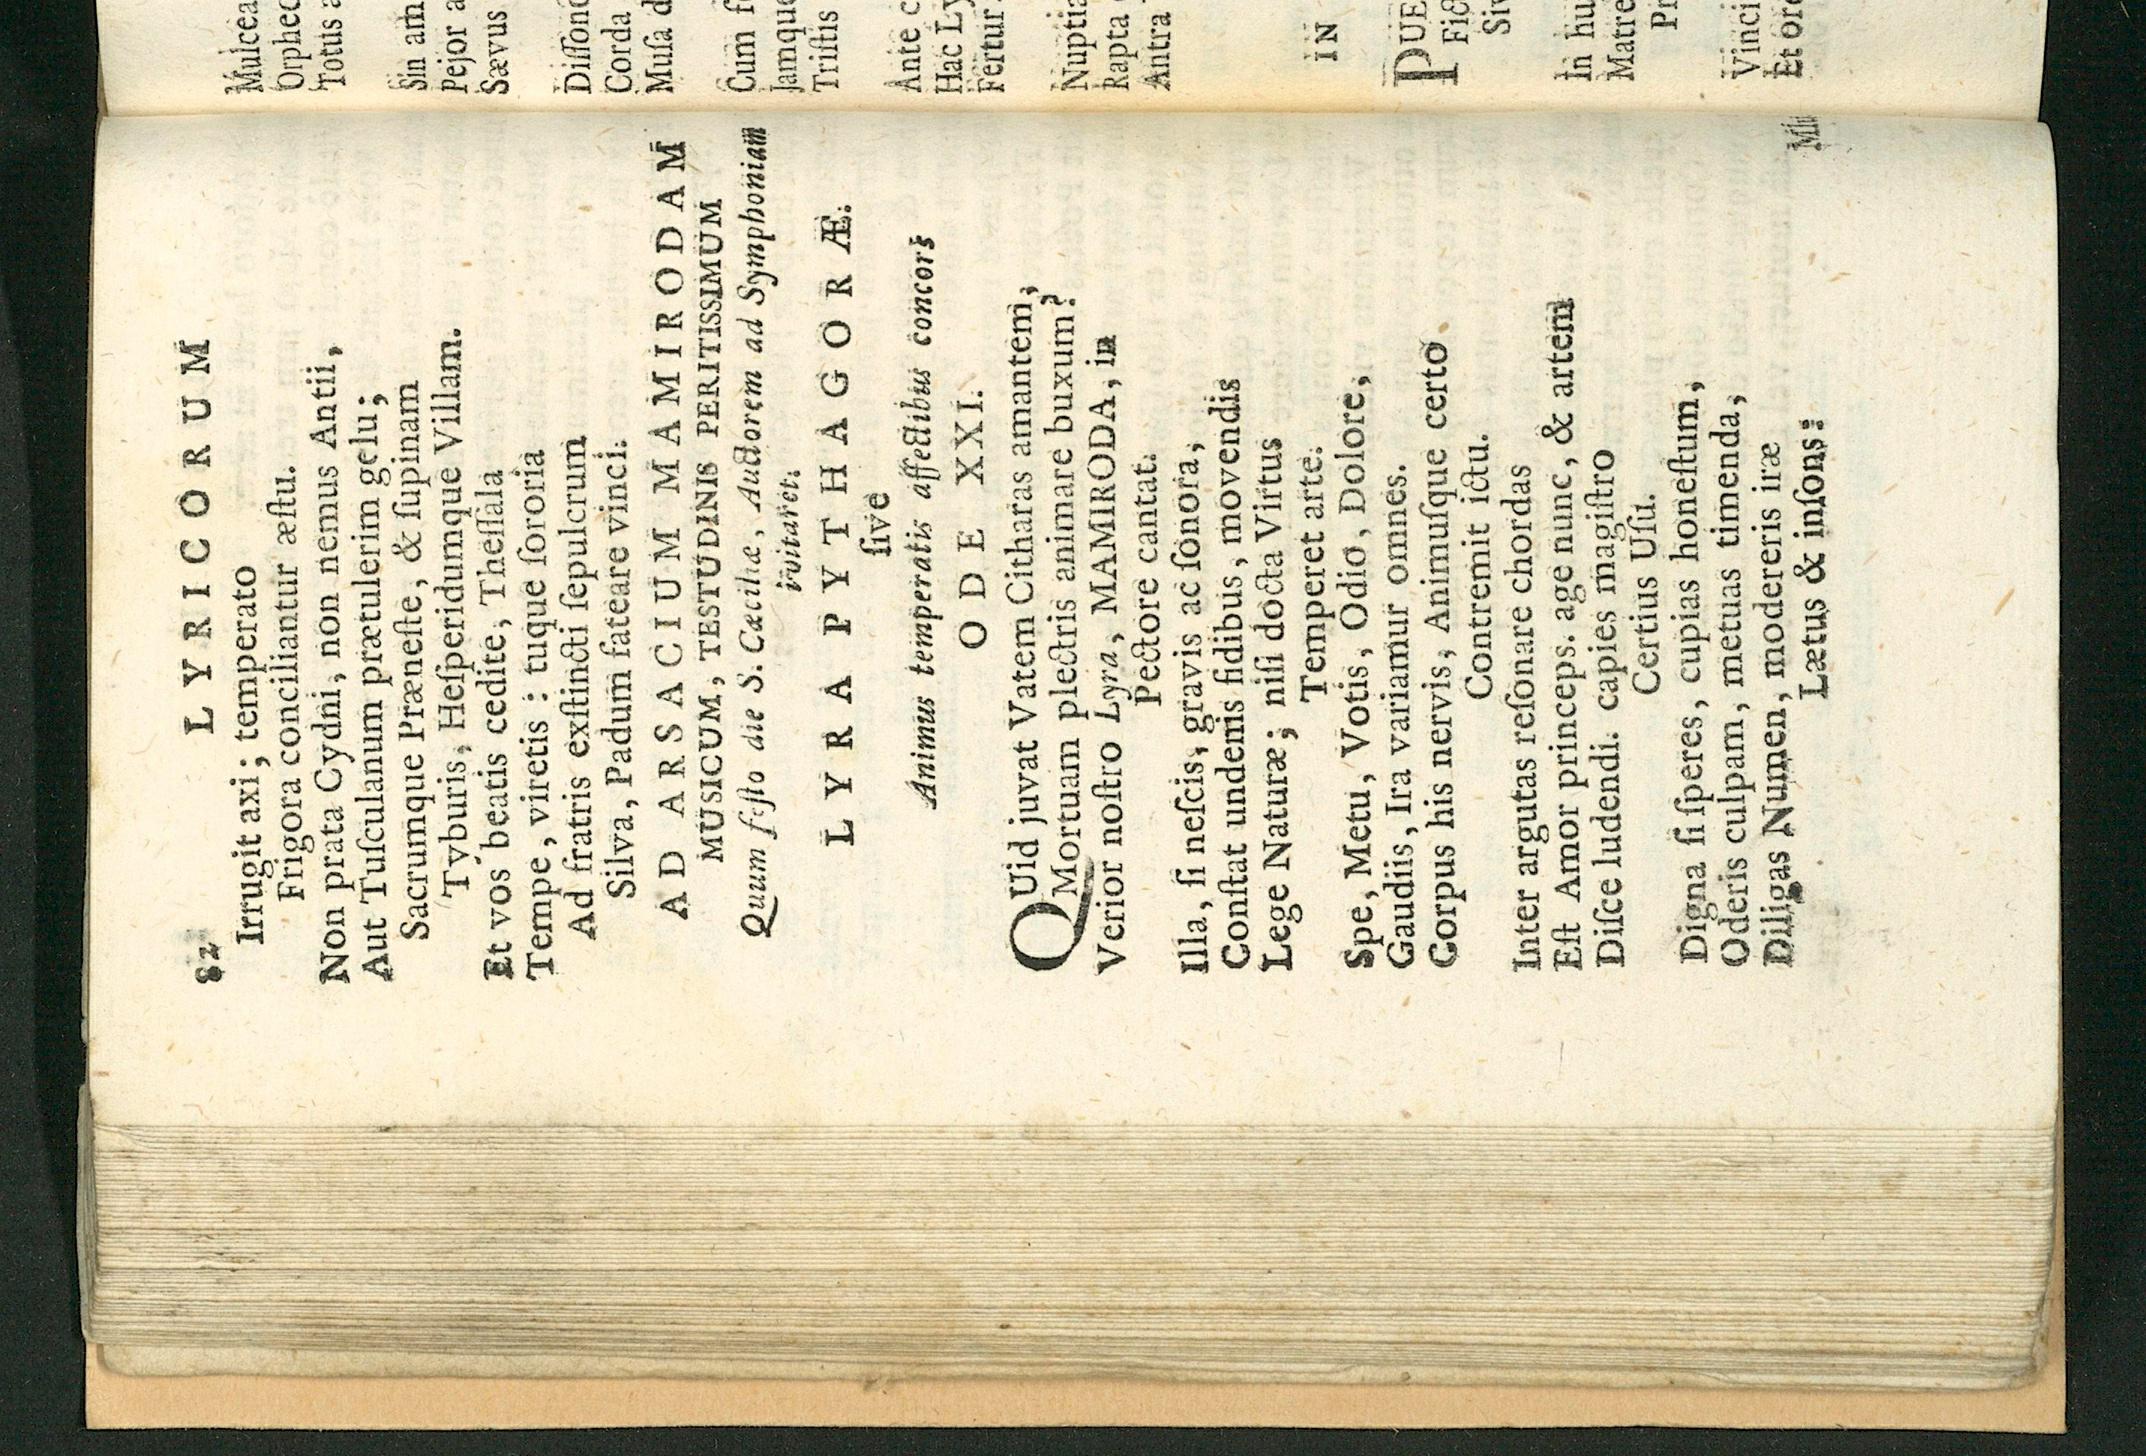 82 LYRICORUM
Irrugit axi; temperato
Frigora conciliantur æſtu.
Non prata Cydni, non nemus Antii,
Aut Tuſculanum prætulerim gelu;
Sacrumque Præneſte, & ſupinam
Tyburis, Heſperidumque Villam.
Et vos beatis cedite, Theſſala
Tempe, viretis : tuque ſororia
Ad fratris exſtincti ſepulcrum
Silva, Padum fateare vinci.
AD ARSACIUM MAMIRODAM
MUSICUM, TESTUDINIS PERITISSIMUM
Quum feſto die S. Cæciliæ, Auctorem ad Symphoniam
invitaret.
LYRA PYTHAGORÆ.
ſive
Animus temperatis affectibus concors
ODE XXI.
QUid juvat Vatem Citharas amantem,
Mortuam plectris animare buxum?
Verior noſtro Lyra, MAMIRODA, in
Pectore cantat.
Illa, ſi neſcis, gravis ac ſonora,
Conſtat undenis fidibus, movendis
Lege Naturæ; niſi docta Virtus
Temperet arte.
Spe, Metu, Votis, Odio, Dolore,
Gaudiis, Ira variamur omnes.
Corpus his nervis, Animuſque certo
Contremit ictu.
Inter argutas reſonare chordas
Eſt Amor princeps. age nunc, & artem
Diſce ludendi. capies magiſtro
Certius Uſu.
Digna ſi ſperes, cupias honeſtum,
Oderis culpam, metuas timenda,
Diligas Numen, modereris iræ
Lætus & inſons:
Mulcea
Orphec
Totus a
Sin am
Pejor a
Sævus
Diſſonc
Corda
Muſa d
Cum f
Jamque
Triſtis
Ante c
Hac Ly
Fertur
Nuptia
Rapta
Antra
IN
PUE
Fic
Siv
In hu
Matre
Pr
Vinci
Et or